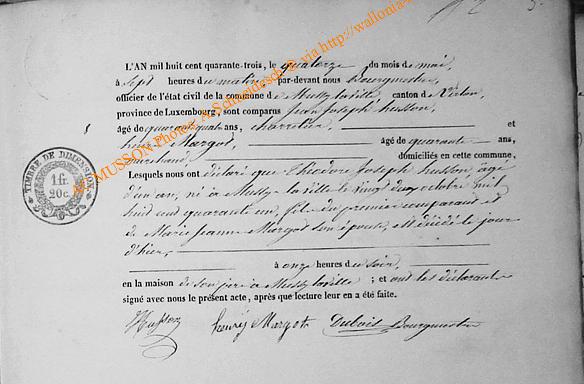 L'AN mil huit cent quarante-trois, le quatorze du mois de mai,
à sept heures du matin par-devant nous Bourgmestre,
officier de l'état civil de la commune de Mussy la ville canton de Virton,
province de Luxembourg, sont comparus Jean Joseph husson,
âgé de quarante quatre ans, charretier, et
henry Margot, âgé de quarante ans,
domiciliés en cette commune,
Lesquels nous ont déclaré que Théodore Joseph husson, âgé
d'un an, né à Mussy la ville le vingt deux octobre mil
huit cent quarante un, fils du premier comparant et
de Marie Jeanne Margot son épouse, est décédé le jour
d'hier,
à onze heures du soir,
en la maison de son père à Mussy la ville ; et ont les déclarants
signé avec nous le présent acte, après que lecture leur en a été faite.
JHusson henry Margot Dubois Bourgmestre
TIMBRE DE DIMENSION
1 fr.
20 c.
MUSSON Photos A Schneidesch via http://wallonia